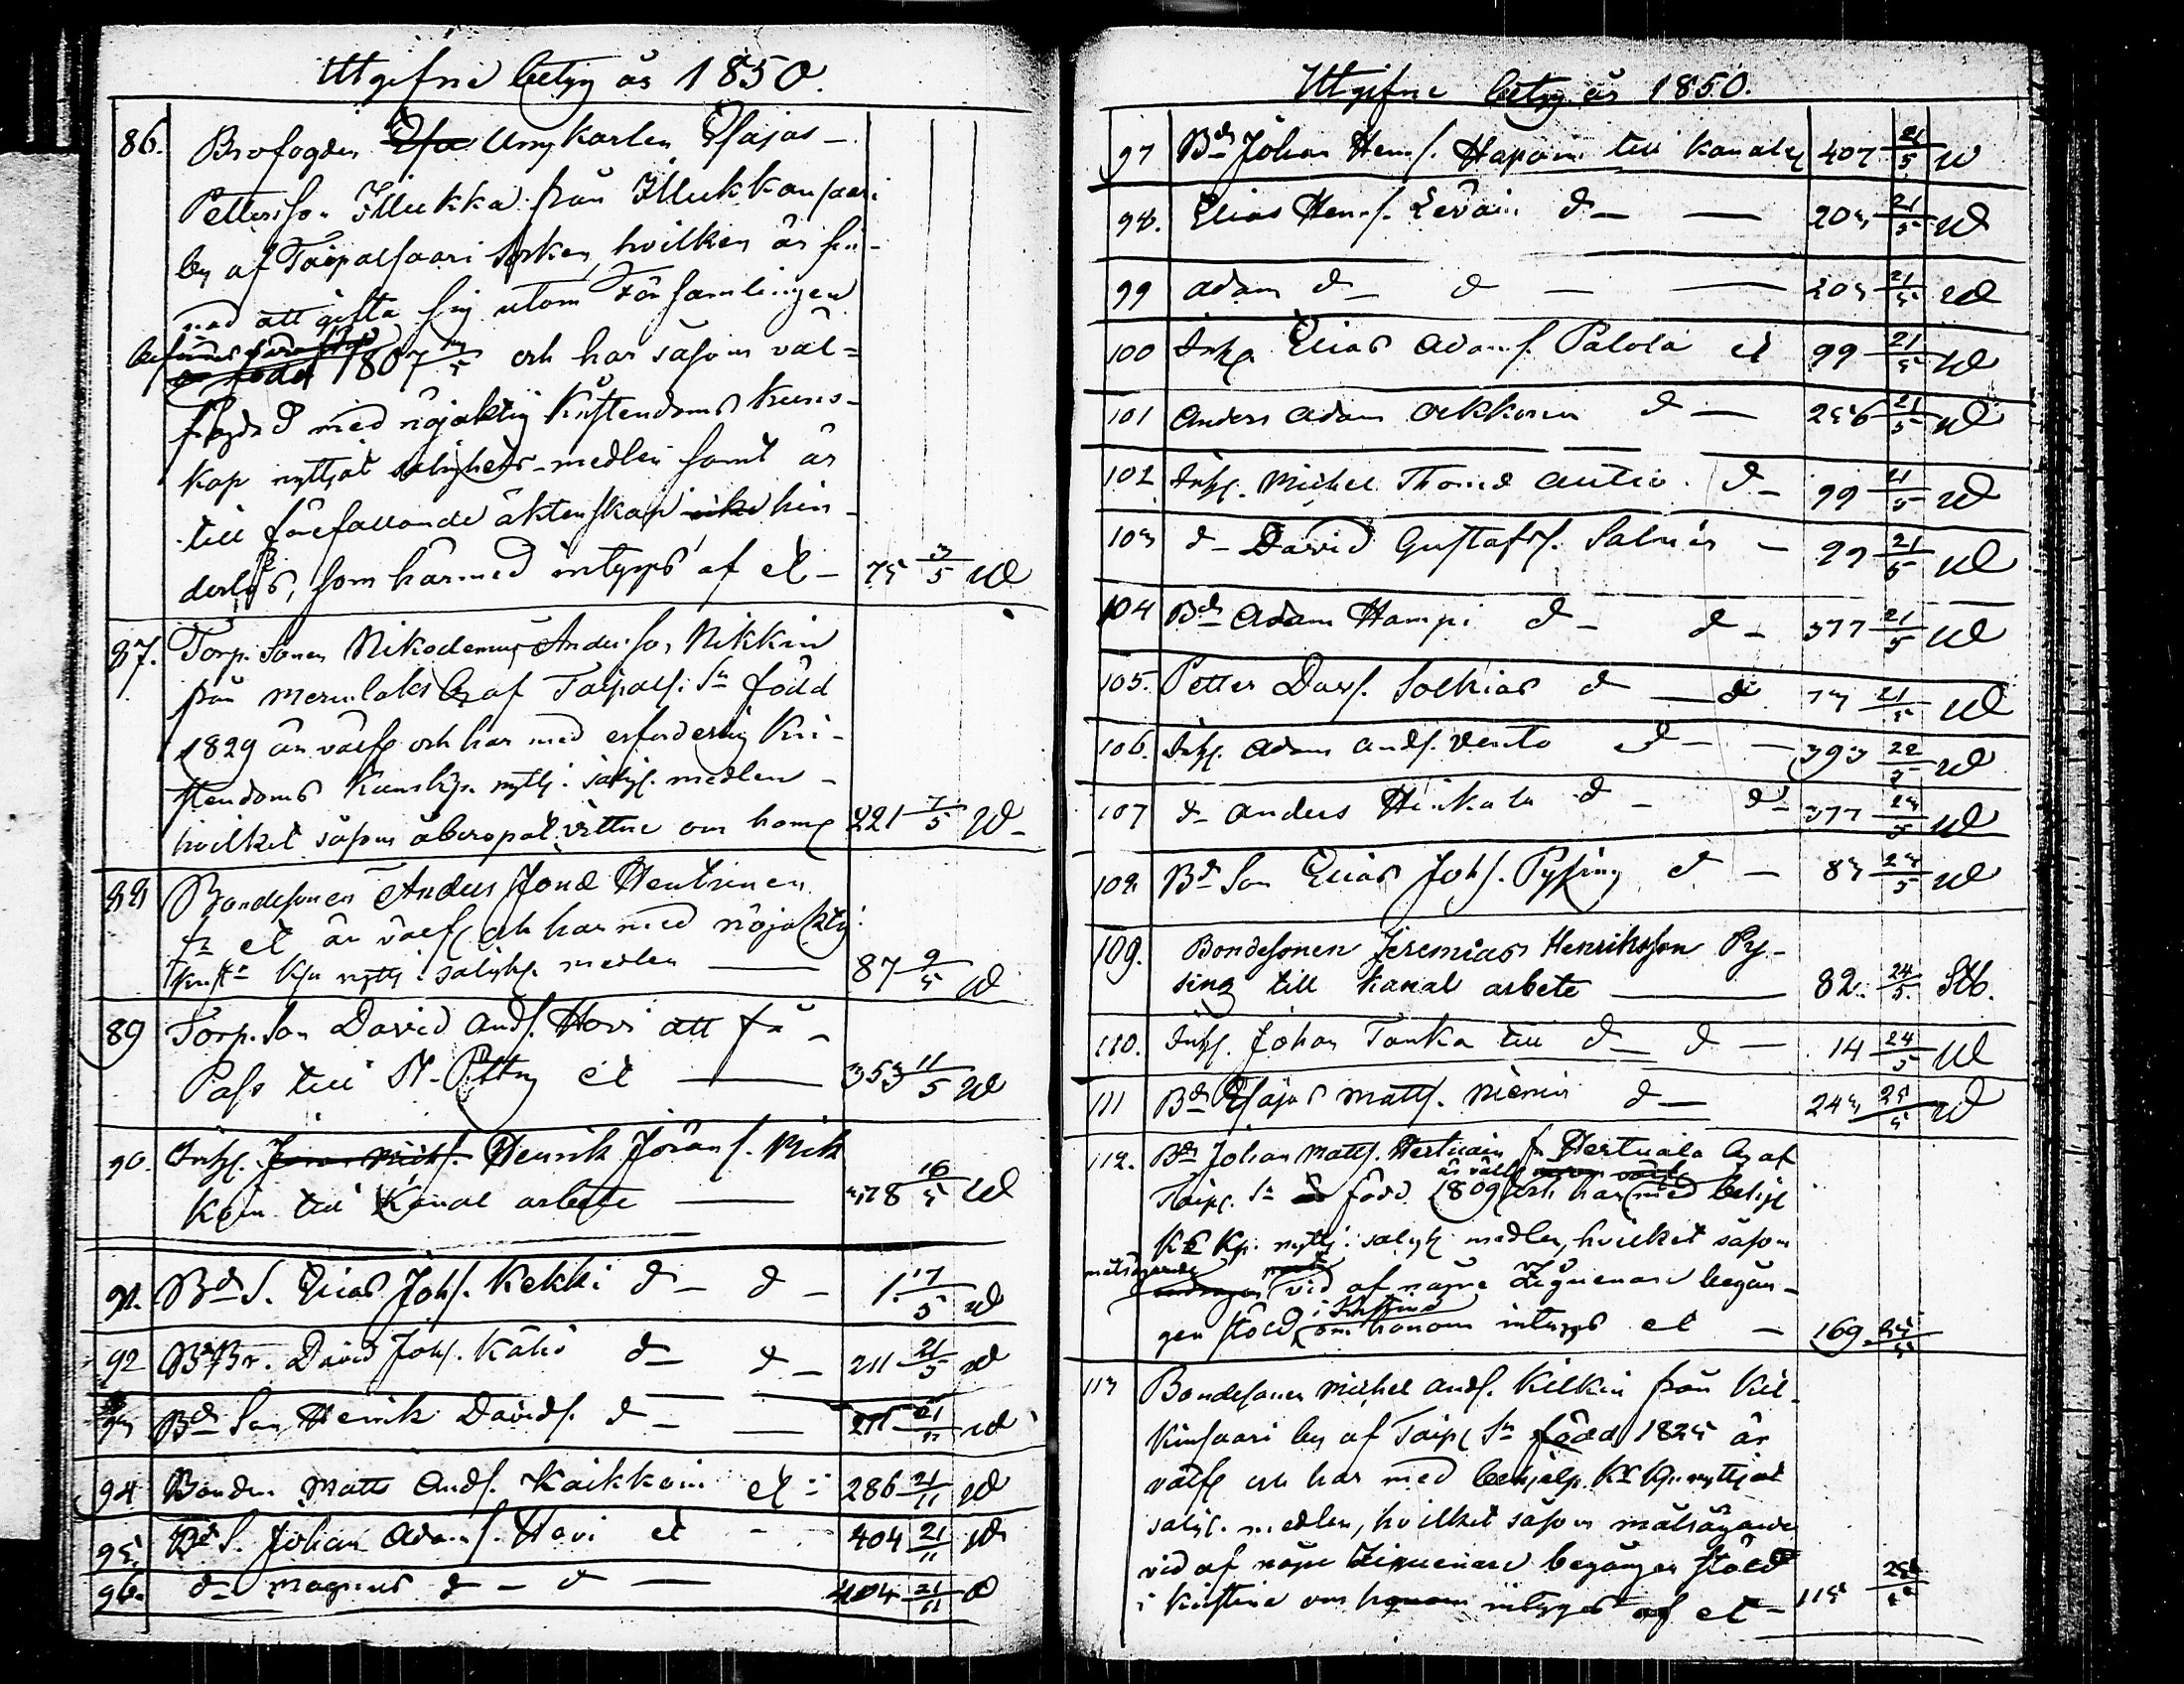 Utgifne betyg år 1850.
86. Brofogden Ungkarlen Esajas
Pettersson Illukka från Illukkansaari
by af Taipalsaari Socken, hvilken är sin-
nad att gifta sig utom Församlingen
befinnes vara född 1807 och har såsom väl-
frägdad med nöjaktig Kristendoms kuns-
kap nyttjat salighets-medlen samt är
till förefallande äktenskap hin-
derlös, som härmed intygas af et - 75 3/5 Ud
87. Torp. Sonen Nikodemus Andersson Nikkin
från Merenlaks by af Taipals. Sn född
1829 är välfr och har med erforderlig Kri-
stendoms Kunskp. nyttj. saligh. medlen -
hvilket såsom åberopat vittne om honom 221 7/5 Ud -
88 Bondesonen Anders Jöns Hentinen
fr et är välfr och har med nöjaktig
Krist Kp nyttj. saligh. medlen — 87 9/5 Ud
89 Torp. Son David Ands. Hovi att få -
Pass till St. Pettbg et — 353 11/5 Ud
90. Inhs. Jöran Michs. Henrik Jörans. Mik
koin till Kanal arbete — 378 16/5 Ud
91. Bd S. Elias Johs. Kekki d - d - 1. 17/5 Ud
92 Bd Br. David Johs. Kähö d - d - 211 21/5 Ud
93 Bd Son Henrik Davids. d - — 211 21/11 Ud
94 Bonden Matts Ands. Kaikkoin et - 286 21/11 Ud
95. Bd S. Johan Adams. Hovi et - 404 21/11 Ud
96. d - Magnus d - d — 404 21/11 Ud
Utgifne betyg år 1850.
97 Bdn Johan Hens. Hapoin till Kanalen 407 21/5 Ud
98. Elias Hens. Leväin d - — 203 21/5 Ud
99 Adam d - d — 203 21/5 Ud
100 Inhs Elias Adams. Palola et 99 21/5 Ud
101 Anders Adam Orkkoin d — 256 21/5 Ud
102 Inhs. Michel Thoms Autio. d - 99 21/5 Ud
103 d - David Gustafs. Salmén - 99 21/5 Ud
104 Bdn Adam Hampi d - d - 377 21/5 Ud
105. Petter Davs. Solkias d — d 73 21/5 Ud
106. Inhs. Adam Ands. Vento d - — 393 22/5 Ud
107 d - Anders Hinkala d - d - 377 23/5 Ud
108 Bd Son Elias Johs. Pysing d - 83 23/5 Ud
109. Bondesonen Jeremias Henriksson Py-
sing till kanal arbete — 82. 24/5. Stb.
110. Inhs. Johan Tanka till d - d — 14 24/5 Ud
111 Bdn Esajas Matts. Niemin d — 243 25/5 Ud
112. Bdn Johan Matts. Hertuain fr Hertuala by af
Taipl. Sn född 1809 är välfr och har med behjl
Ks Kp. nyttj. saligh medlen, hvilket såsom
målsägande vid af några Ziguenare begån-
gen stöld i Kristina om honom intygas et — 169 25/5
113 Bondesonen Michel Ands. Kilkin från Kil-
kinsaari by af Taipl Sn född 1825 är
välfr och har med behjelp. Ks Kp. nyttjat
saligh. medlen, hvilket såsom målsägande
vid af någre Ziguenare begången stöld
i Kristina om honom intygas af et - 115 25/5